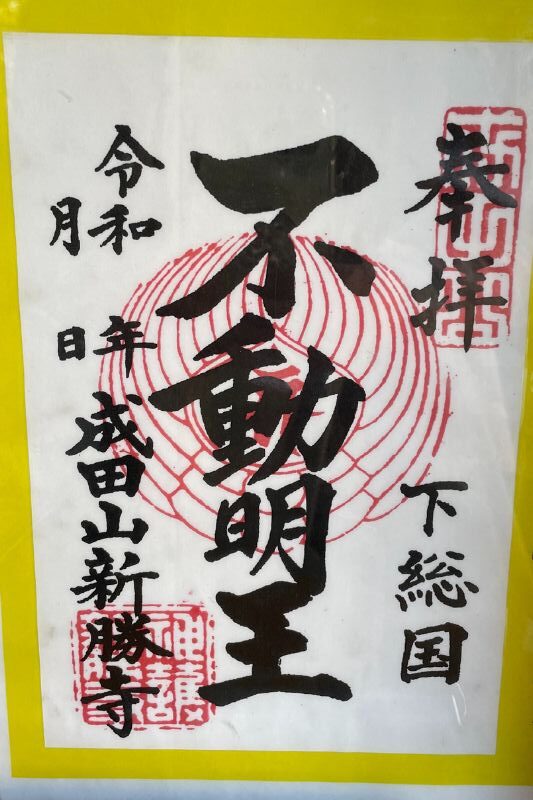 奉拝
下総国
不動明王
令和 年
月 日
成田山新勝寺